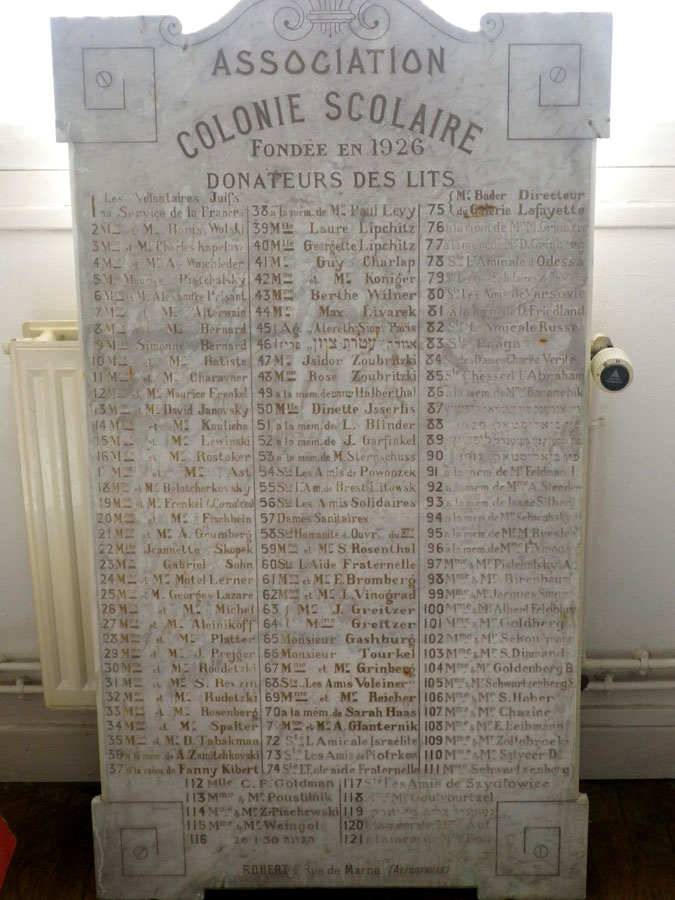 ASSOCIATION
COLONIE SCOLAIRE
FONDÉE EN 1926
DONATEURS DES LITS
1 Les Volontaires Juifs
au Service de la France
2 Mme et Mr Boris Wolski
3 Mme et Mr Charles Kapelus
4 Mme et Mr A. Waichleder
5 Maurice Pistchalsky
6 Mme et Mr Alexandre Prisant
7 Mme et Mr Alterwain
8 Mme et Mr Bernard
9 Mlle Simonne Bernard
10 Mme et Mr Batiste
11 Mme et Mr Charavner
12 Mme et Mr Maurice Frenkel
13 Mme et Mr David Janovsky
14 Mme et Mr Kouliche
15 Mme et Mr Lewinski
16 Mme et Mr Rostoker
17 Mme et Mr Ast
18 Mme et Mr Belotcherkovsky
19 Mme et Mr Frenkel (Londres)
20 Mme et Mr Fischbein
21 Mme et Mr A. Grumberg
22 Mlle Jeannette Skopek
23 Mr Gabriel Sohn
24 Mme et Mr Motel Lerner
25 Mme et Mr Georges Lazare
26 Mme et Mr Michel
27 Mme et Mr Aleinikoff
28 Mme et Mr Platter
29 Mme et Mr J. Prejger
30 Mme et Mr Roudetzki
31 Mme et Mr S. Rezin
32 Mme et Mr Rudetzki
33 Mme et Mr Rosenberg
34 Mme et Mr Spalter
35 Mme et Mr D. Tabakman
36 a la mém. de A. Zamitchkovski
37 a la mém. de Fanny Kibert
38 a la mem. de Mr Paul Levy
39 Mlle Laure Lipchitz
40 Mlle Georgette Lipchitz
41 Mr Guy Charlap
42 Mme et Mr Koniger
43 Mme Berthe Wilner
44 Mme Max Livarek
45 Ag. „Atereth Sion" Paris
46 אגודה „עטרת ציון" פריז
47 Mr Jsidor Zoubritzki
48 Mme Rose Zoubritzki
49 a la mem. de Halberthal
50 Mlle Dinette Jsserlis
51 a la mem. de L. Blinder
52 a la mem. de J. Garfinkel
53 a la mem. de M. Sternschuss
54 Sté Les Amis de Powonzek
55 Sté L'Am. de Brest-Litowsk
56 Sté Les Amis Solidaires
57 Dames Sanitaires
58 Sté Humanité d. Ouvr. du XIe
59 Mme et Mr S. Rosenthal
60 Sté L'Aide Fraternelle
61 Mme et Mr E. Bromberg
62 Mme et Mr I. Vinograd
63 Mr J. Greitzer
64 Mme Greitzer
65 Monsieur Gashburg
66 Monsieur Tourkel
67 Mme et Mr Grinberg
68 Sté „Les Amis Voleiner"
69 Mme et Mr Reicher
70 a la mém. de Sarah Haas
71 Mme et Mr A. Glanternik
72 Sté L'Amicale Israélite
73 Sté Les Amis de Piotrkow
74 Sté L'Entraide Fraternelle
75 Mr Bader Directeur
du Galerie Lafayette
76 a la mem. de Mr M. Grinberg
77 a la mem. de D. Grinberg
78 Sté L'Amicale d'Odessa
79 Solidaires
80 Sté Les Amis de Varsovie
81 a la mem. de D. Friedland
82 Sté L'Amicale Russe
83 Sté Praga
84 Sté des Dames Charité Verife
85 Sté Chessed l'Abraham
86 a la mem. de Mr Barantchik
87
88
89
90
91 a la mem. de Mr Feldman I
92 a la mem. de Mme A. Stender
93 a la mem. de Isaac Silber
94 a la mem. de Mr Schwabsky
95 a la mem. de Mr M. Breslev
96 a la mem. de Mme F. Vinograd
97 Mme & Mr Pistchalsky A.
98 Mme & Mr Birenbaum
99 Mme & Mr Jacques Singer
100 Mme & Mr Albert Feldblum
101 Mme & Mr Goldberg
102 Mme & Mr Schouchmann
103 Mme & Mr S. Diamand
104 Mme & Mr Goldenberg B.
105 Mme & Mr Schwartzenberg S
106 Mme & Mr S. Haber
107 Mme & Mr Chazine
108 Mme & Mr E. Leibmann
109 Mme & Mr Zoltobrock
110 Mme & Mr Szlycer D.
111 Mme & Mr Schwartzenberg
112 Mlle C. F. Goldman
113 Mme & Mr Poustilnik
114 Mme & Mr Z. Pinchewski
115 Mme & Mr Weingott
116 20-1-30
117 Sté Les Amis de Szydlowiec
118 Mme & Mr
119
120 a la mém de Mr Ast
121 a la mem de Mr
ROBERT Rue de Marne (ALFORTVILLE)